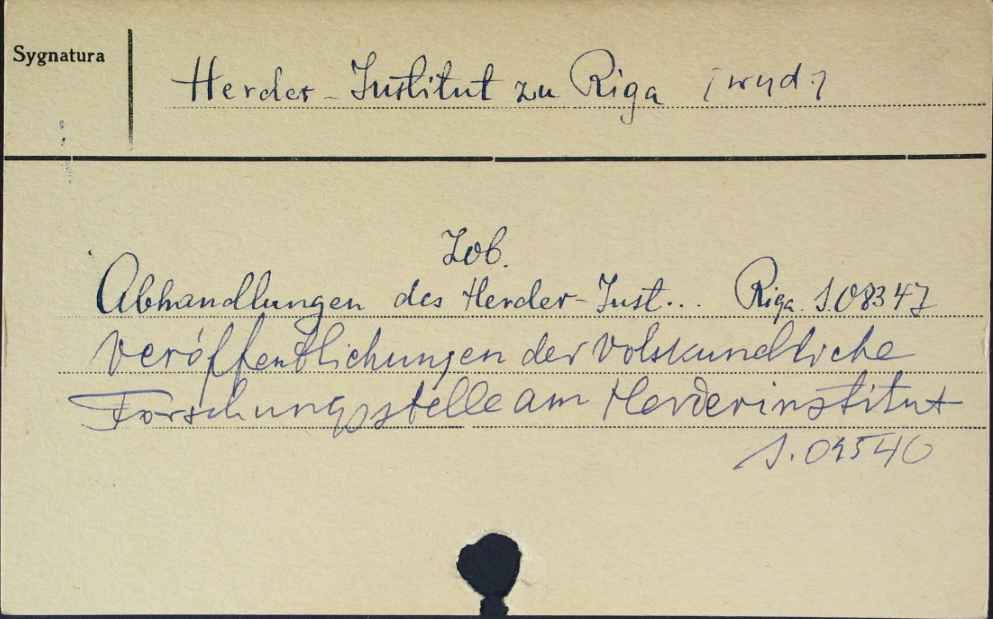 Sygnatura
Herder-Institut zu Riga [wyd.]
Zob.
Abhandlungen des Herder-Inst... Riga. S.08347
Veröffentlichungen der volskundliche
Forschungsstelle am Herderinstitut
S.09540